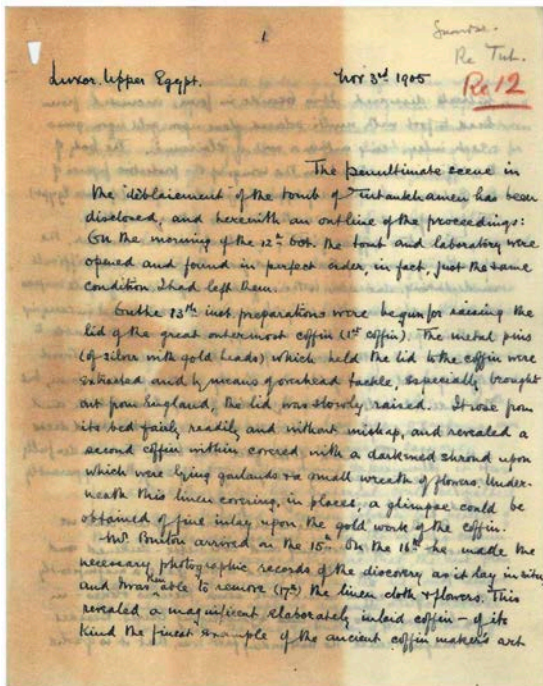 1
Re Tut.
Re 12
Luxor. Upper Egypt. Nov 3rd 1905
The penultimate scene in
the "déblaiement" of the tomb of Tutankhamen has been
disclosed, and herewith an outline of the proceedings:
On the morning of the 12th Oct. the tomb and laboratory were
opened and found in perfect order, in fact, just the same
condition I had left them.
On the 13th inst. preparations were begun for raising the
lid of the great outermost coffin (1st coffin). The metal pins
(of silver with gold heads) which held the lid to the coffin were
extracted and by means of overhead tackle, especially brought
out from England, the lid was slowly raised. It rose from
its bed fairly readily and without mishap, and revealed a
second coffin within covered with a darkened shroud upon
which were lying garlands & a small wreath of flowers. Under-
neath this linen covering, in places, a glimpse could be
obtained of fine inlay upon the gold work of the coffin.
Mr. Burton arrived on the 15th. On the 16th he made the
necessary photographic records of the discovery as it lay in situ,
and I was then able to remove (17th) the linen cloth & flowers. This
revealed a magnificent elaborately inlaid coffin - of its
kind the finest example of the ancient coffin maker's art